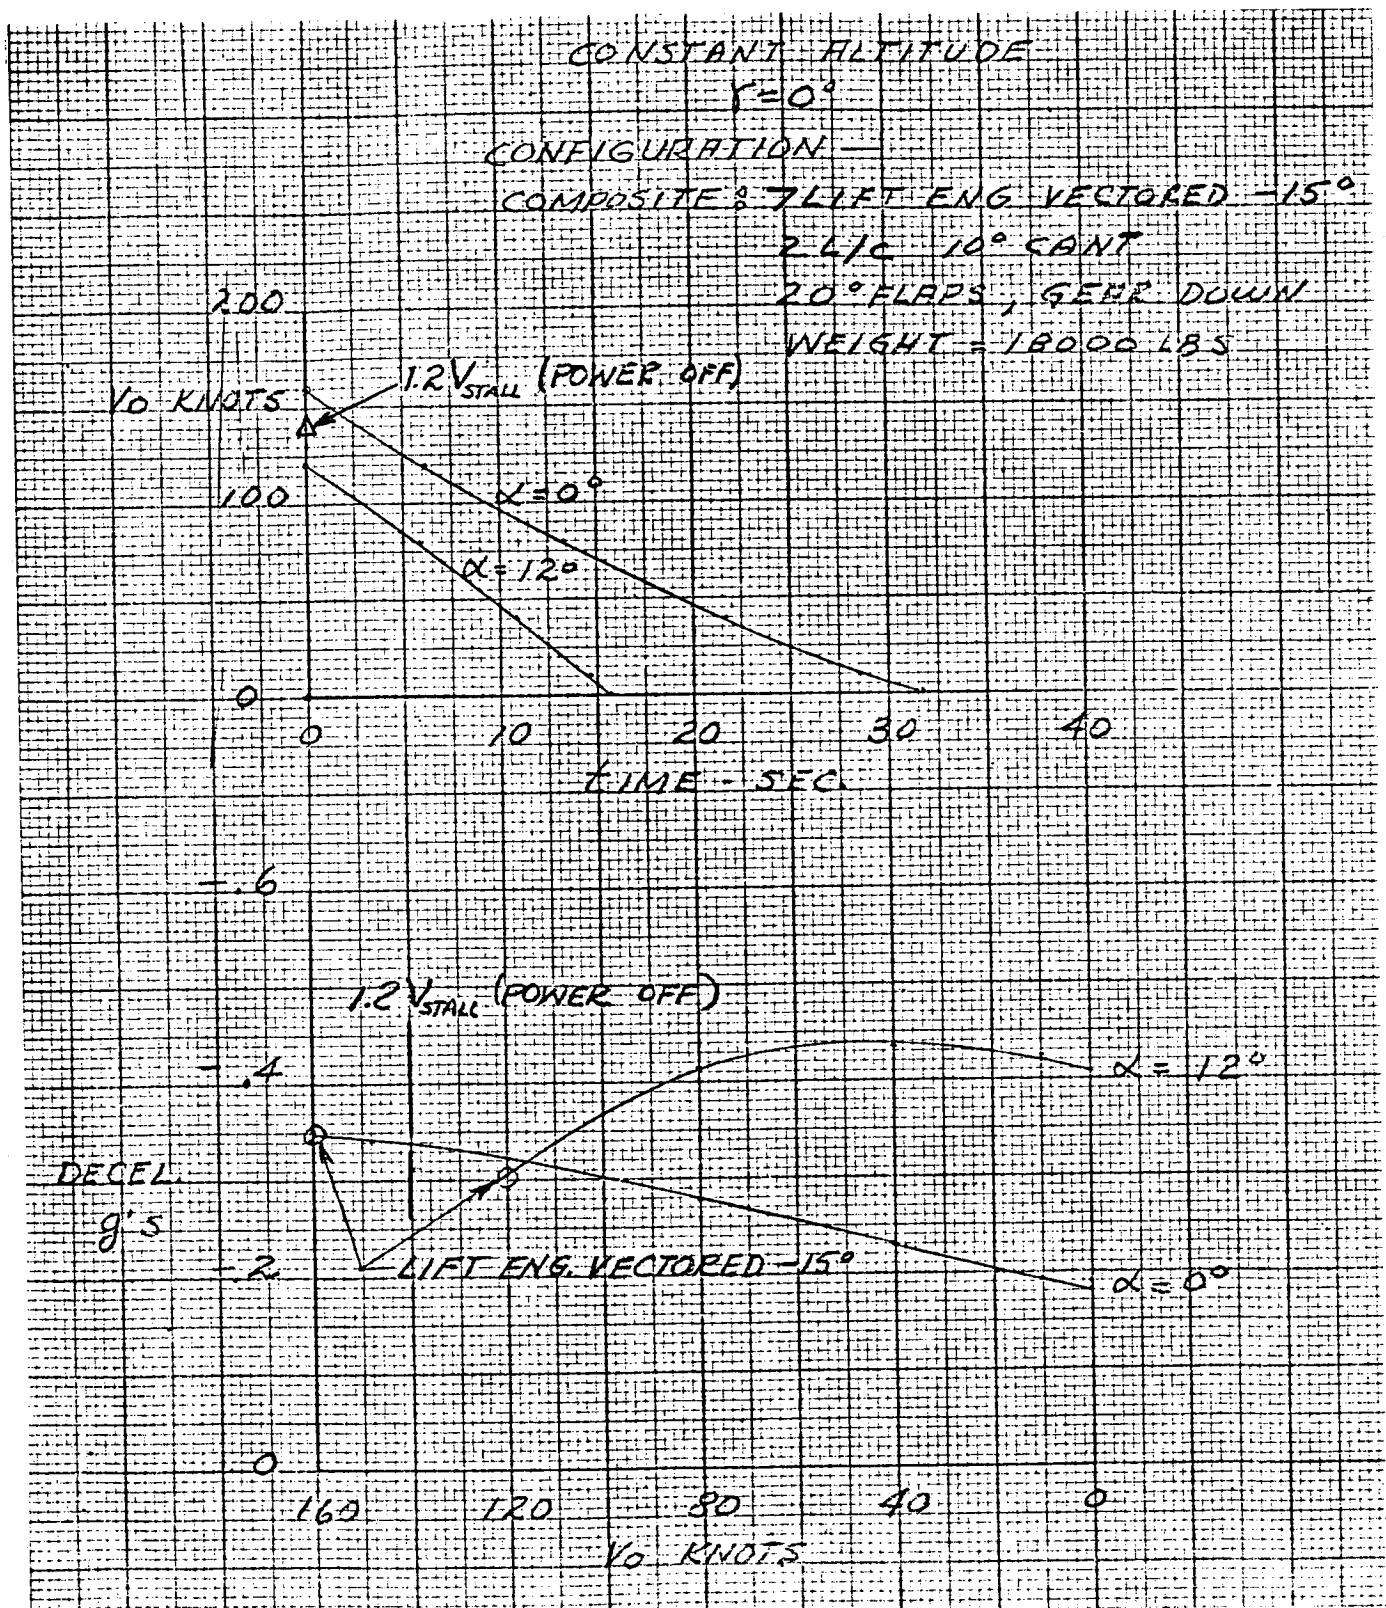 CONSTANT ALTITUDE
γ=0°
CONFIGURATION —
COMPOSITE: 7 LIFT ENG VECTORED -15°
2 L/C 10° CANT
20° FLAPS, GEAR DOWN
WEIGHT = 18000 LBS
200
1.2 VSTALL (POWER OFF)
VO KNOTS
100
α=0°
α=12°
0
0 10 20 30 40
TIME - SEC.
-.6
1.2 VSTALL (POWER OFF)
-.4
α = 12°
DECEL.
g's
-.2
LIFT ENG. VECTORED -15°
α=0°
0
160 120 80 40 0
VO KNOTS